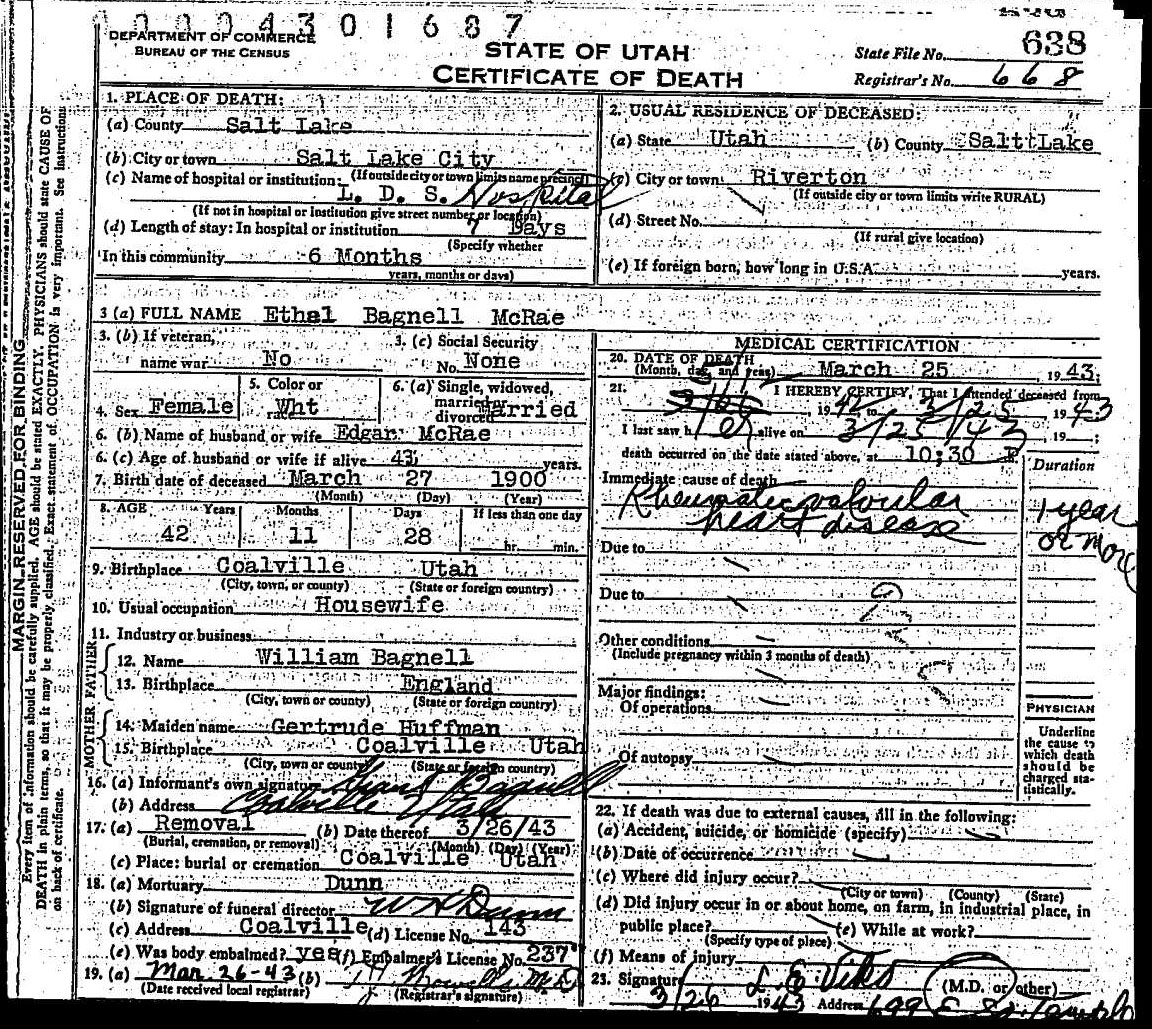 00004301687
DEPARTMENT OF COMMERCE
BUREAU OF THE CENSUS
STATE OF UTAH
CERTIFICATE OF DEATH
State File No. 638
Registrar's No. 668
MARGIN RESERVED FOR BINDING
Every item of information should be carefully supplied. AGE should be stated EXACTLY. PHYSICIANS should state CAUSE OF
DEATH in plain terms, so that it may be properly classified. Exact statement of OCCUPATION is very important. See instructions
on back of certificate.
1. PLACE OF DEATH:
(a) County Salt Lake
(b) City or town Salt Lake City
(If outside city or town limits name precinct)
(c) Name of hospital or institution:
L. D. S. Hospital
(If not in hospital or institution give street number or location)
(d) Length of stay: In hospital or institution 7 Days
(Specify whether
In this community 6 Months
years, months or days)
2. USUAL RESIDENCE OF DECEASED:
(a) State Utah (b) County SalttLake
(c) City or town Riverton
(If outside city or town limits write RURAL)
(d) Street No.
(If rural give location)
(e) If foreign born, how long in U.S.A. years.
3 (a) FULL NAME Ethel Bagnell McRae
3. (b) If veteran, name war No
3. (c) Social Security No. None
4. Sex Female
5. Color or race Wht
6. (a) Single, widowed, married or divorced Married
6. (b) Name of husband or wife Edgar McRae
6. (c) Age of husband or wife if alive 43 years.
7. Birth date of deceased March 27 1900
(Month) (Day) (Year)
8. AGE Years Months Days If less than one day
42 11 28 hr. min.
9. Birthplace Coalville Utah
(City, town, or county) (State or foreign country)
10. Usual occupation Housewife
11. Industry or business
FATHER
12. Name William Bagnell
13. Birthplace England
(City, town or county) (State or foreign country)
MOTHER
14. Maiden name Gertrude Huffman
15. Birthplace Coalville Utah
(City, town or county) (State or foreign country)
16. (a) Informant's own signature Bagnell
(b) Address Coalville Utah
17. (a) Removal (b) Date thereof 3/26/43
(Burial, cremation, or removal) (Month) (Day) (Year)
(c) Place: burial or cremation Coalville Utah
18. (a) Mortuary Dunn
(b) Signature of funeral director Dunn
(c) Address Coalville (d) License No. 143
(e) Was body embalmed? yes (f) Embalmer's License No. 237
19. (a) Mar 26-43 (b) M.D.
(Date received local registrar) (Registrar's signature)
MEDICAL CERTIFICATION
20. DATE OF DEATH
(Month, day, and year) March 25 1943;
21. I HEREBY CERTIFY, That I attended deceased from
1942 to 3/25 1943
I last saw her alive on 3/25/43, 19 ;
death occurred on the date stated above, at 10:30 P
Duration
Immediate cause of death
Rheumatic valvular
heart disease
1 year
or more
Due to
Due to
Other conditions
(Include pregnancy within 3 months of death)
Major findings:
Of operations
Of autopsy
PHYSICIAN
Underline
the cause to
which death
should be
charged sta-
tistically.
22. If death was due to external causes, fill in the following:
(a) Accident, suicide, or homicide (specify)
(b) Date of occurrence
(c) Where did injury occur?
(City or town) (County) (State)
(d) Did injury occur in or about home, on farm, in industrial place, in
public place? (e) While at work?
(Specify type of place)
(f) Means of injury
23. Signature L. E. Viko (M.D. or other)
3/26 1943 Address 699 E So. Temple